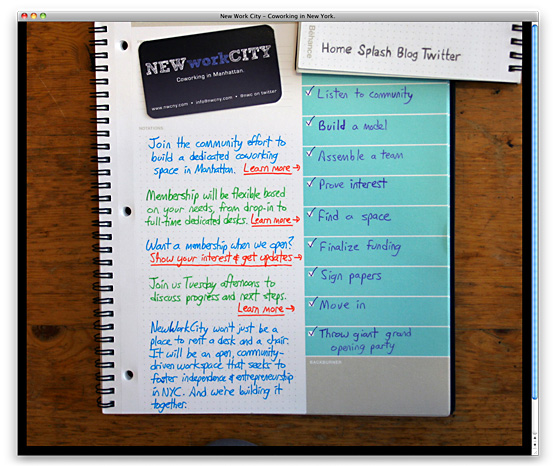 New Work City - Coworking in New York.
NEWworkCITY
Coworking in Manhattan.
www.nwcny.com • info@nwcny.com • @nwc on twitter
Behance
Home Splash Blog Twitter
Join the community effort to
build a dedicated coworking
space in Manhattan. Learn more→
Membership will be flexible based
on your needs, from drop-in to
full-time dedicated desks. Learn more→
Want a membership when we open?
Show your interest & get updates→
Join us Tuesday afternoons to
discuss progress and next steps.
Learn more→
NewWorkCity won't just be a
place to rent a desk and a chair.
It will be an open, community-
driven workspace that seeks to
foster independence & entrepreneurship
in NYC. And we're building it
together.
✓ Listen to community
✓ Build a model
✓ Assemble a team
✓ Prove interest
✓ Find a space
✓ Finalize funding
✓ Sign papers
✓ Move in
✓ Throw giant grand
opening party
BACKBURNER